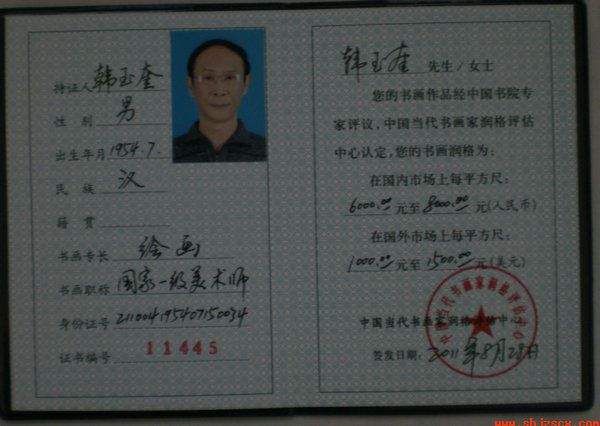 持证人 韩玉奎
性 别 男
出生年月 1954.7.
民 族 汉
籍 贯
书画专长 绘画
书画职称 国家一级美术师
身份证号 211004195407150034
证书编号 11445
韩玉奎 先生/女士
您的书画作品经中国书院专
家评议,中国当代书画家润格评估
中心认定,您的书画润格为:
在国内市场上每平方尺:
6000.00元至8000.00元(人民币)
在国外市场上每平方尺:
1000.00元至1500.00元(美元)
中国当代书画家润格评估中心
中国当代书画家润格评估中心
签发日期: 2011年8月28日
www.shjzscx.com